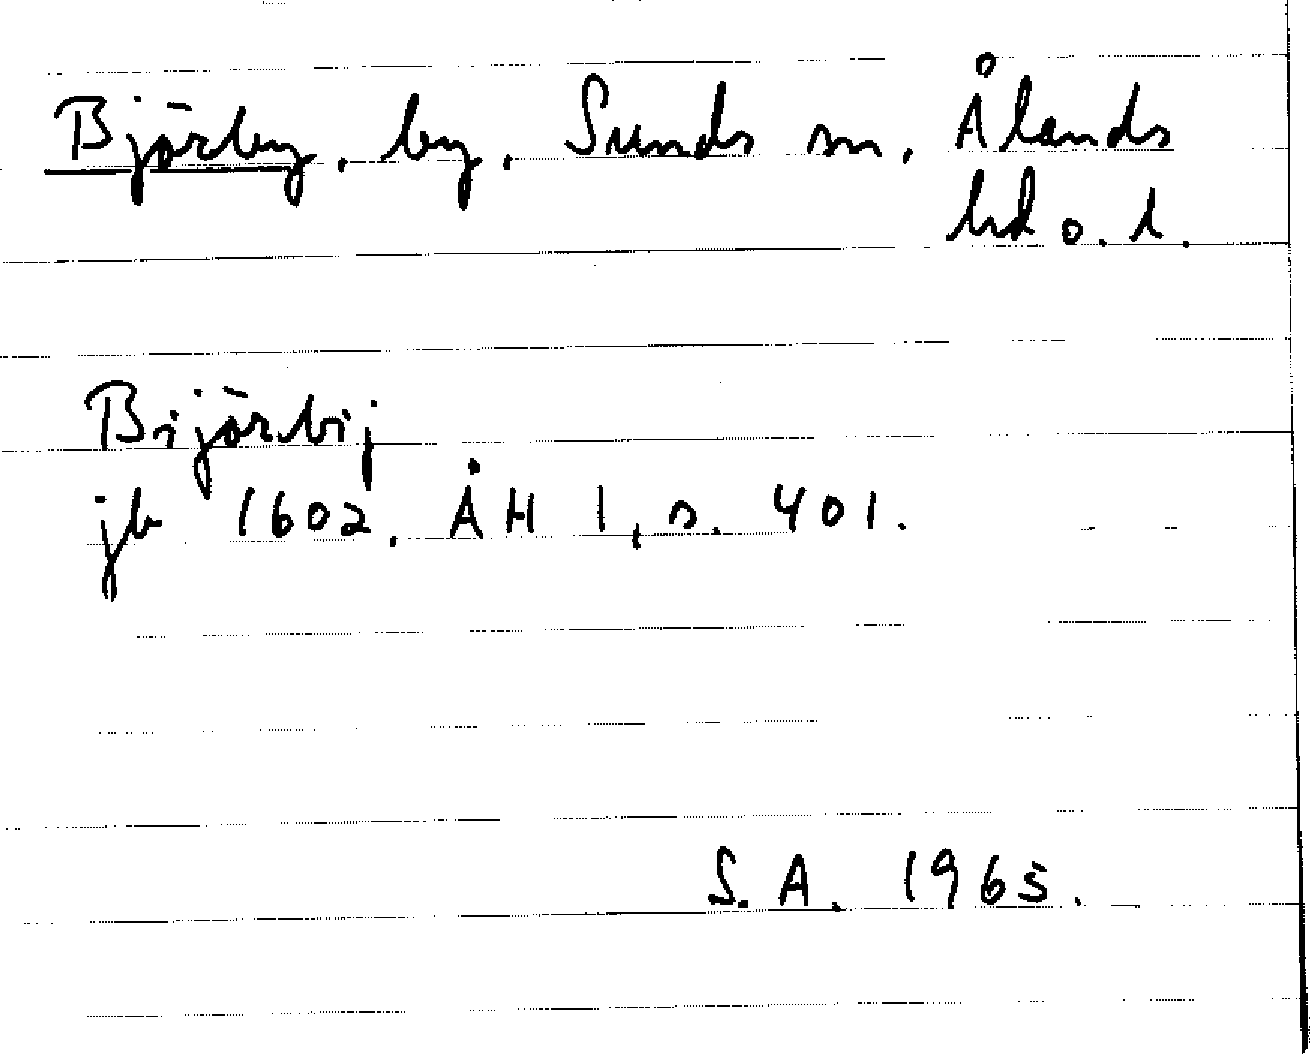 Björby, by, Sunds sn, Ålands
hd o. l.
Bijörbij
jb 1602. ÅH I, s. 401.
S. A. 1965.